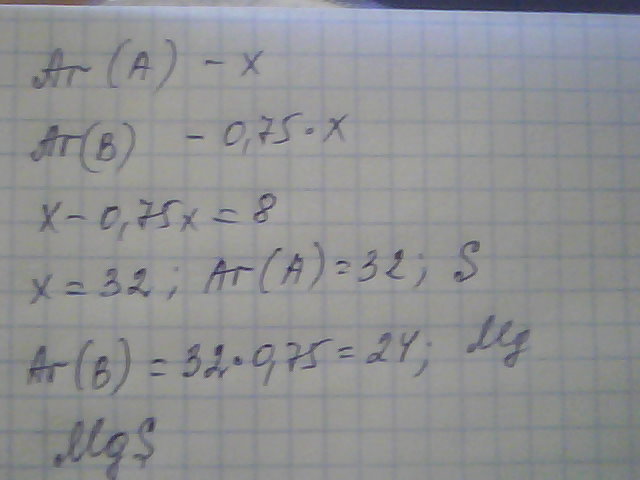 Ar(A) - x
Ar(B) - 0,75·x
x - 0,75x = 8
x = 32; Ar(A) = 32; S
Ar(B) = 32·0,75 = 24; Mg
MgS